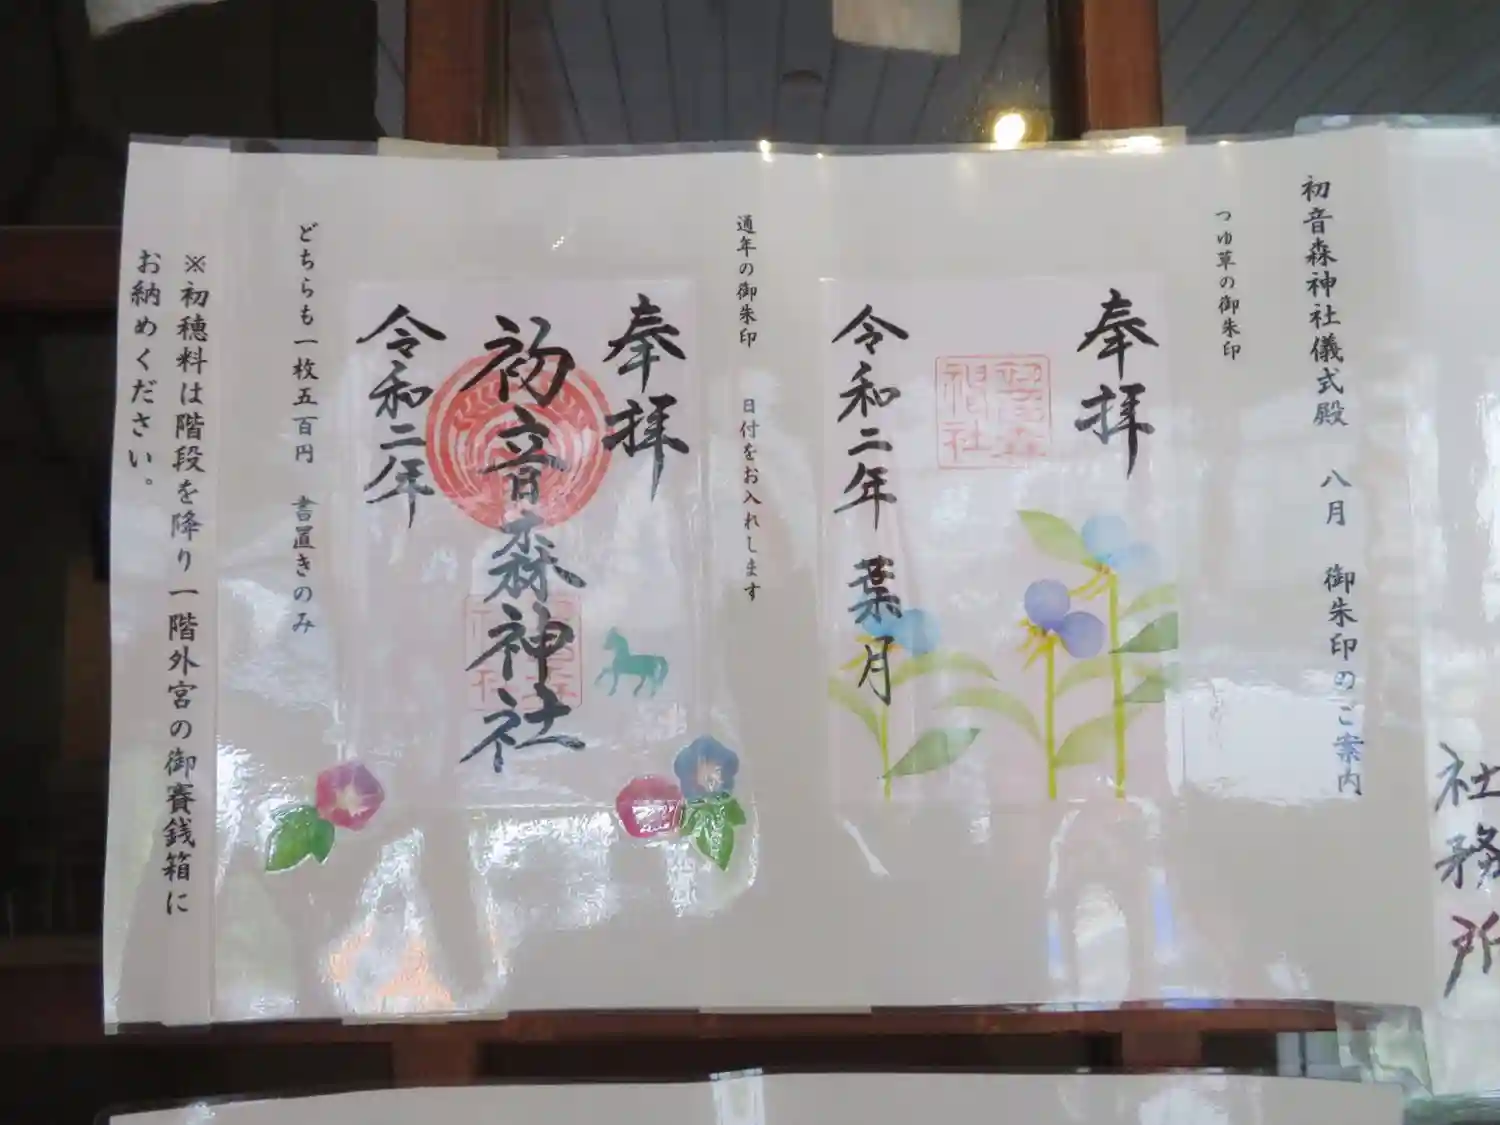 社務所
初音森神社儀式殿　八月　御朱印のご案内
つゆ草の御朱印
奉拝
初音森神社
令和二年　葉月
通年の御朱印　日付をお入れします
奉拝
初音森神社
令和二年
どちらも一枚五百円　書置きのみ
※初穂料は階段を降り一階外宮の御賽銭箱に
お納めください。